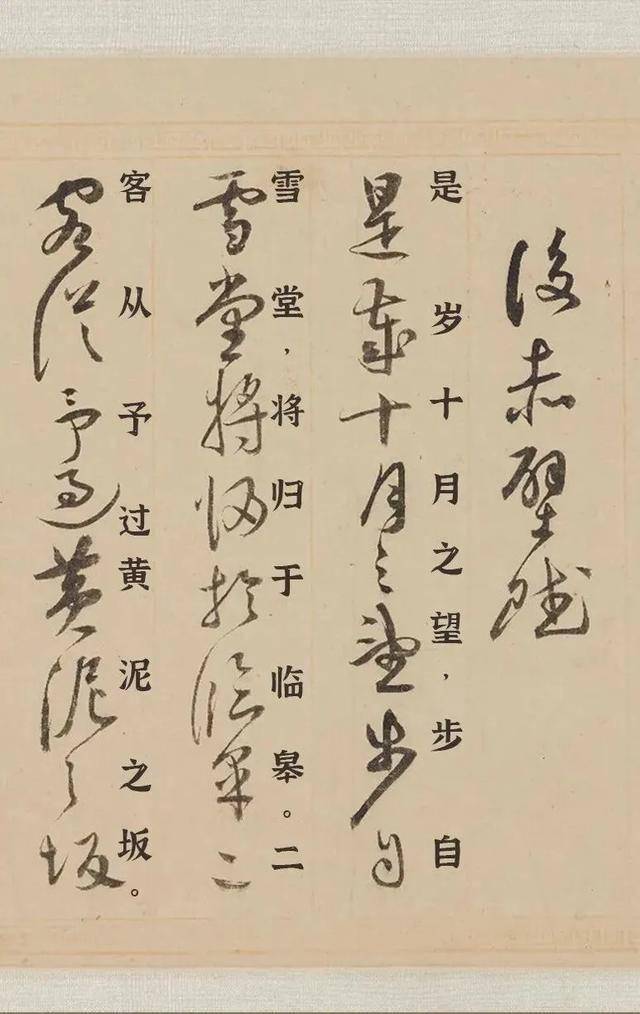 後赤壁賦
是歲十月之望步自
是岁十月之望，步自
雪堂將歸於臨皋二
雪堂，将归于临皋。二
客從予過黃泥之坂
客从予过黄泥之坂。